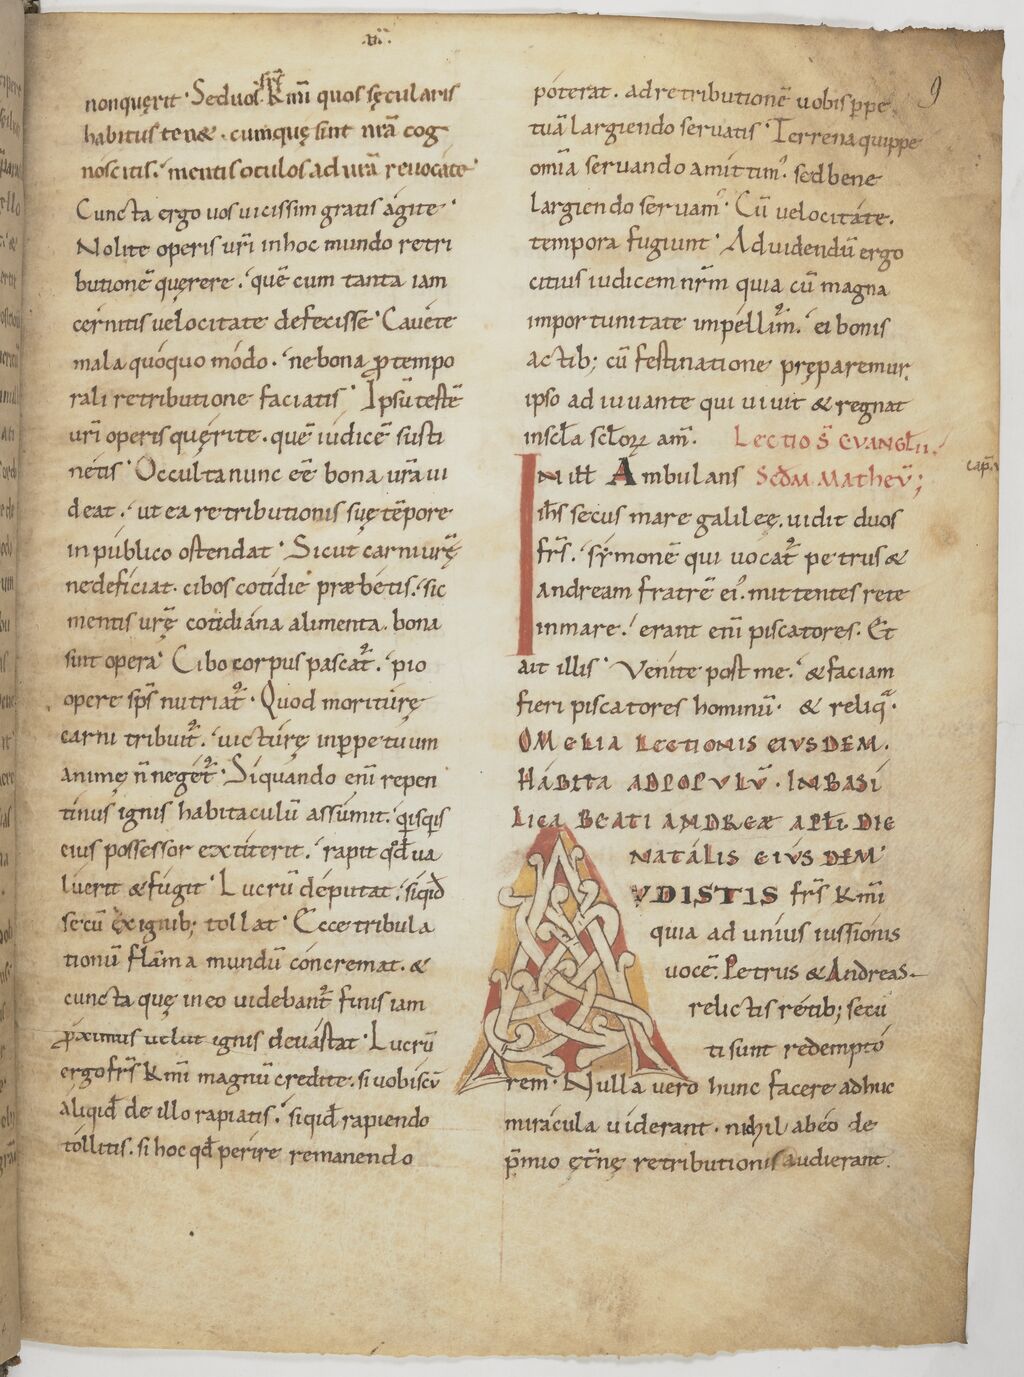 .v.
9
nonquęrit · Sed uos fr̃s Km̃i quos sęcularis
habitus ten& · cumque sint nr̃a cog
noscitis. mentis oculos ad ur̃a reuocate ·
Cuncta ergo uos uicissim gratis agite ·
Nolite operis ur̃i in hoc mundo retri
butionē quęrere. quē cum tanta iam
cernitis uelocitate defecisse · Cauete
mala quoquo modo. ne bona ꝓ tempo
rali retributione faciatis · Ipsū testē
ur̃i operis quęrite. quē iudicē susti
netis · Occulta nunc ee͂ bona ur̃a ui
deat. ut ea retributionis suę tēpore
in publico ostendat · Sicut carni ur̃ę
ne deficiat. cibos cotidie præbetis. sic
mentis ur̃ę cotidiana alimenta. bona
sint opera · Cibo corpus pascat̃. pio
opere sp̃s nutriat̃ · Quod moriturę
carni tribuit̃. uicturę in ꝑpetuum
animę ñ neget̃ · Siquando enī repen
tinus ignis habitaculū assumit. qisqis
eius possessor extiterit. rapit qd̃ ua
luerit & fugit · Lucrū deputat. siqid
secū ex ignib; tollat · Ecce tribula
tionū flam̃a mundū concremat. &
cuncta quę in eo uidebant̃ finis iam
ꝓximus uelut ignis deuastat · Lucrū
ergo fr̃s Km̃i magnū credite. si uobiscū
aliqid de illo rapiatis. si qid rapiendo
tollitis. si hoc qd̃ perire remanendo
poterat. ad retributionē uobis ꝑpe
tuā largiendo seruatis · Terrena quippe
om̃ia seruando amittim᾿. sed bene
largiendo seruam᾿ · Cū uelocitate.
tempora fugiunt · Ad uidendū ergo
citius iudicem nr̃m quia cū magna
importunitate impellim᾿. ei bonis
actib; cū festinatione pręparemur.
ipso adiuuante qui uiuit & regnat
in scl̃a scl̃oꝝ am̃. Lectio S̃ EVANGL̃II.
IN ill̃ Ambulans Scd̃m Matheū;
cap.
ih̃s secus mare galileę. uidit duos
fr̃s. symonē qui uocat̃ petrus &
andream fratrē ei᾿. mittentes rete
in mare. erant enī piscatores. Et
ait illis · Venite post me. & faciam
fieri piscatores hominū · & reliq̃ ·
OMELIA LECTIONIS EIVSDEM.
HABITA AD POPVLVM̃ · IN BASI
LICA BEATI ANDREÆ APL̃I. DIE
NATALIS EIVSDEM
AVDISTIS fr̃s Km̃i
quia ad unius iussionis
uocē. Petrus & Andreas.
relictis retib; secu
ti sunt redempto
rem · Nulla uero hunc facere adhuc
miracula uiderant. nichil ab eo de
p̃mio ęt̃nę retributionis audierant.